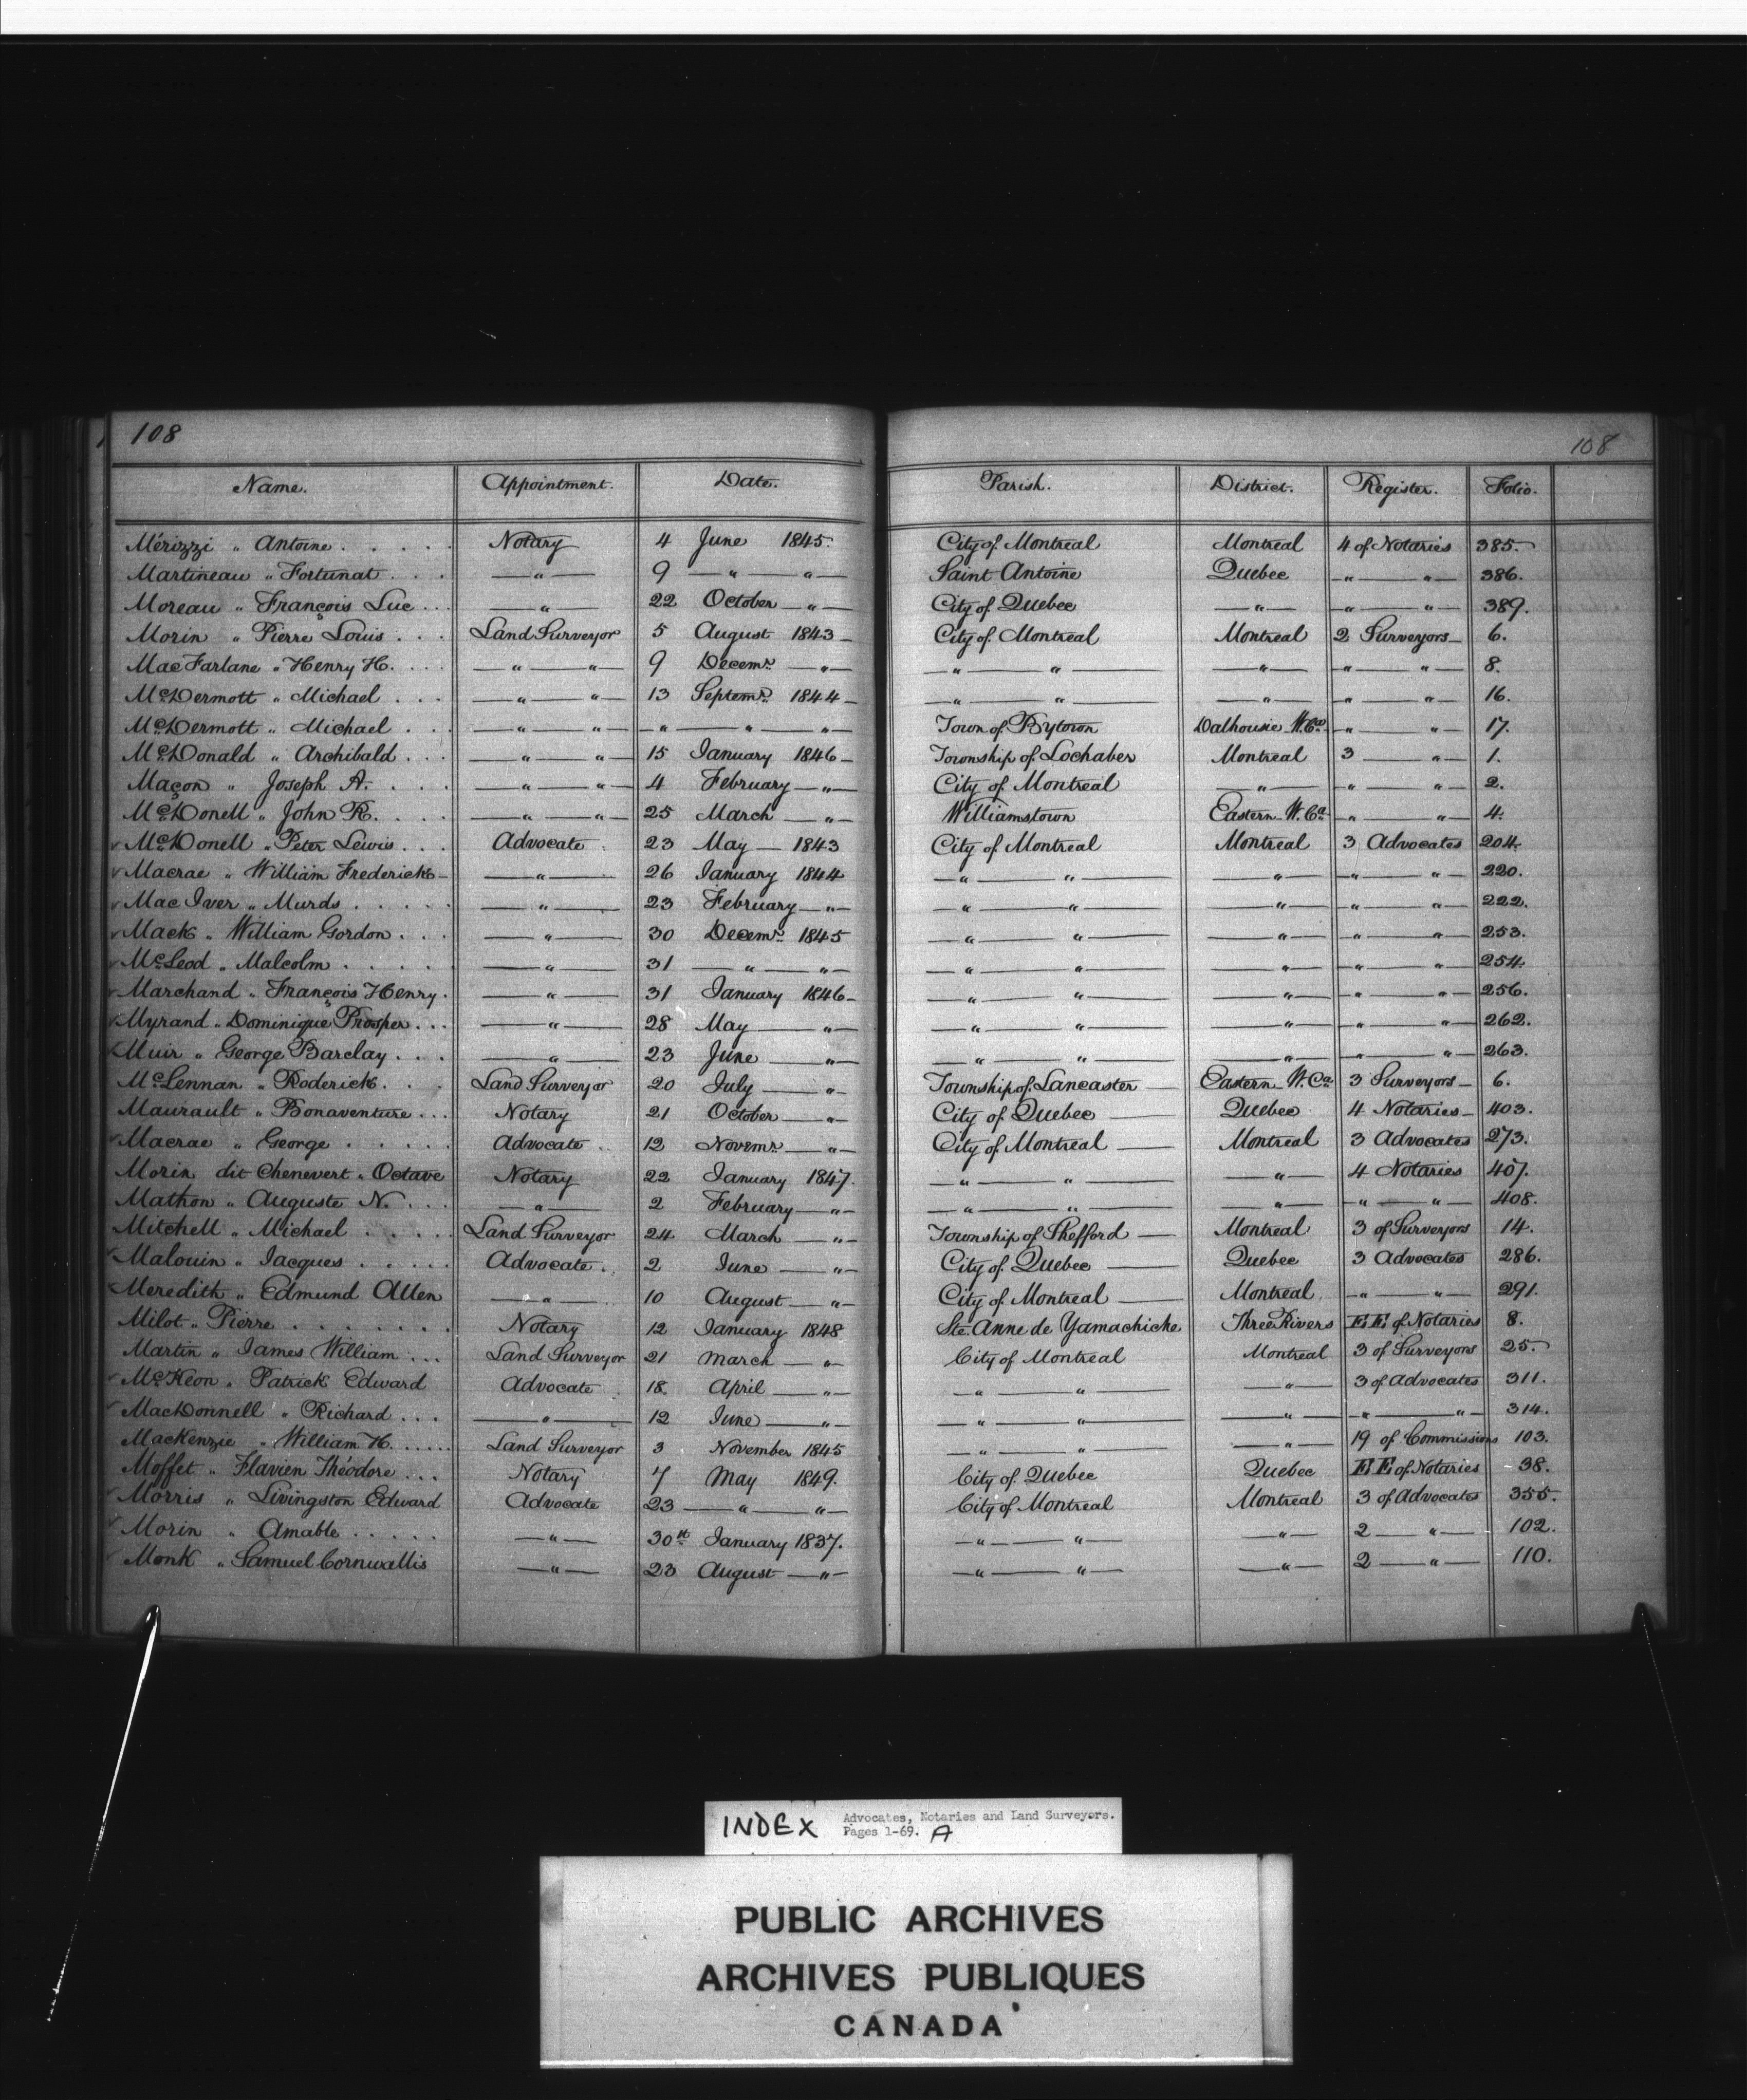 108
108
Name. Appointment. Date. Parish. District. Register. Folio.
Mérizzi " Antoine . . . . . Notary 4 June 1845. City of Montreal Montreal 4 of Notaries 385.
Martineau " Fortunat . . . — " — 9 — " — " — Saint Antoine Quebec — " — " — 386.
Moreau " François Luc . . . — " — 22 October — " — City of Quebec — " — — " — " — 389.
Morin " Pierre Louis . . . Land Surveyor 5 August 1843 — City of Montreal Montreal 2 Surveyors — 6.
MacFarlane " Henry H. . . . — " — " — 9 Decemr. — " — — " — " — — " — — " — " — 8.
McDermott " Michael . . . — " — " — 13 Septemr. 1844 — — " — " — — " — — " — " — 16.
McDermott " Michael . . . — " — " — " — " — " — Town of Bytown Dalhousie W. Ca. — " — " — 17.
McDonald " Archibald . . . — " — " — 15 January 1846 — Township of Lochaber Montreal 3 — " — 1.
Maçon " Joseph A. . . . — " — " — 4 February — " — City of Montreal — " — — " — " — 2.
McDonell " John R. . . . — " — " — 25 March — " — Williamstown Eastern W. Ca. — " — " — 4.
McDonell " Peter Lewis . . . Advocate 23 May — 1843 City of Montreal Montreal 3 Advocates 204.
Macrae " William Frederick — — " — 26 January 1844 — " — " — — " — — " — " — 220.
MacIver " Murds . . . . . — " — 23 February — " — — " — " — — " — — " — " — 222.
Mack " William Gordon . . . — " — 30 Decemr. 1845 — " — " — — " — — " — " — 253.
McLeod " Malcolm . . . . . — " — 31 — " — " — — " — " — — " — — " — " — 254.
Marchand " François Henry . — " — 31 January 1846 — — " — " — — " — — " — " — 256.
Myrand " Dominique Prosper . . . — " — 28 May — " — — " — " — — " — — " — " — 262.
Muir " George Barclay . . . — " — 23 June — " — — " — " — — " — — " — " — 263.
McLennan " Roderick . . . Land Surveyor 20 July — " — Township of Lancaster — Eastern W. Ca. 3 Surveyors — 6.
Maurault " Bonaventure . . . Notary 21 October — " — City of Quebec — Quebec 4 Notaries — 403.
Macrae " George . . . . . Advocate 12 Novemr. — " — City of Montreal — Montreal 3 Advocates 273.
Morin dit Chenevert " Octave Notary 22 January 1847. — " — " — — " — 4 Notaries 407.
Mathon " Auguste N. . . . — " — 2 February — " — — " — " — — " — — " — " — 408.
Mitchell " Michael . . . . . Land Surveyor 24 March — " — Township of Shefford — Montreal 3 of Surveyors 14.
Malouin " Jacques . . . . . Advocate 2 June — " — City of Quebec — Quebec 3 Advocates 286.
Meredith " Edmund Allen — " — 10 August — " — City of Montreal — Montreal — " — " — 291.
Milot " Pierre . . . . . . . Notary 12 January 1848 Ste. Anne de Yamachiche Three Rivers EE of Notaries 8.
Martin " James William . . . Land Surveyor 21 March — " — City of Montreal Montreal 3 of Surveyors 25.
McKeon " Patrick Edward Advocate 18. April — " — — " — " — — " — 3 of Advocates 311.
MacDonnell " Richard . . . — " — 12 June — " — — " — " — — " — — " — " — 314.
MacKenzie " William H. . . . . . Land Surveyor 3 November 1845 — " — " — — " — 19 of Commissions 103.
Moffet " Flavien Théodore . . . Notary 7 May 1849. City of Quebec Quebec EE of Notaries 38.
Morris " Livingston Edward Advocate 23 — " — " — City of Montreal Montreal 3 of Advocates 355.
Morin " Amable . . . . . — " — 30th January 1837. — " — " — — " — 2 — " — 102.
Monk " Samuel Cornwallis — " — 23 August — " — — " — " — — " — 2 — " — 110.
INDEX Advocates, Notaries and Land Surveyors.
Pages 1-69. A
PUBLIC ARCHIVES
ARCHIVES PUBLIQUES
CANADA